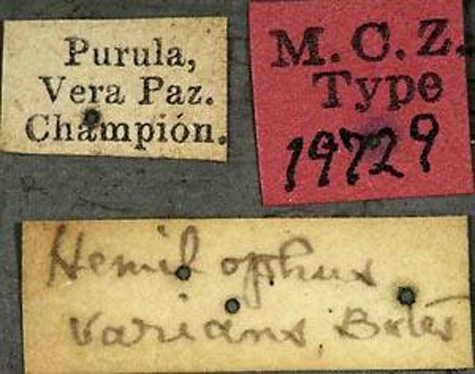 Purula,
Vera Paz.
Champión.
M.C.Z.
Type
19729
Hemilophus
varians Bates